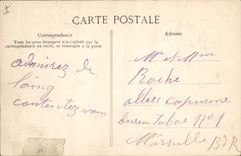 CARTE POSTALE
Correspondance
Tous les pays étrangers n'acceptent pas la
correspondance au recto, se renseigner à la poste
Adresse
admirez de
loing
contentez vous
Mr et Mme
Roche
allées capucine
bureau tabac N° 1
Marseille BDR